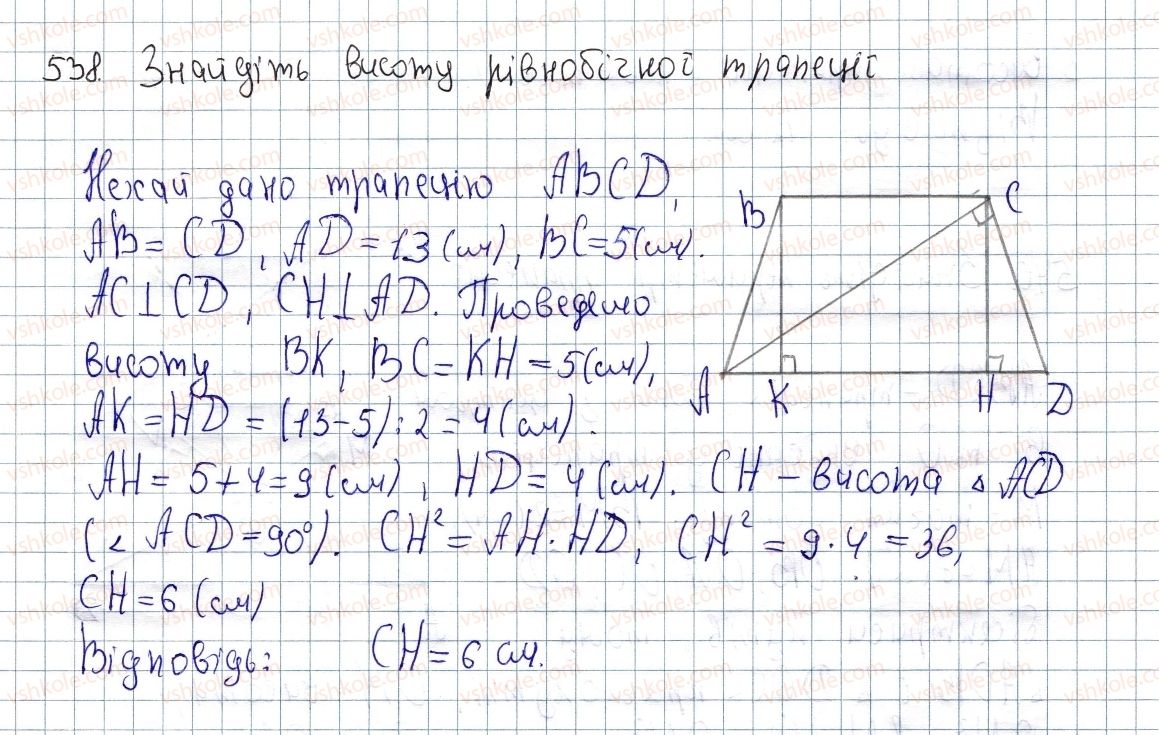 538. Знайдіть висоту рівнобічної трапеції
Нехай дано трапецію ABCD,
AB = CD, AD = 13 (см), BC = 5 (см).
AC⊥CD, CH⊥AD. Проведемо
висоту BK, BC = KH = 5 (см),
AK = HD = (13-5):2 = 4 (см).
AH = 5+4 = 9 (см), HD = 4 (см). CH - висота △ ACD
(∠ ACD = 90°). CH² = AH·HD; CH² = 9·4 = 36,
CH = 6 (см)
Відповідь: CH = 6 см.
B C
A K H D